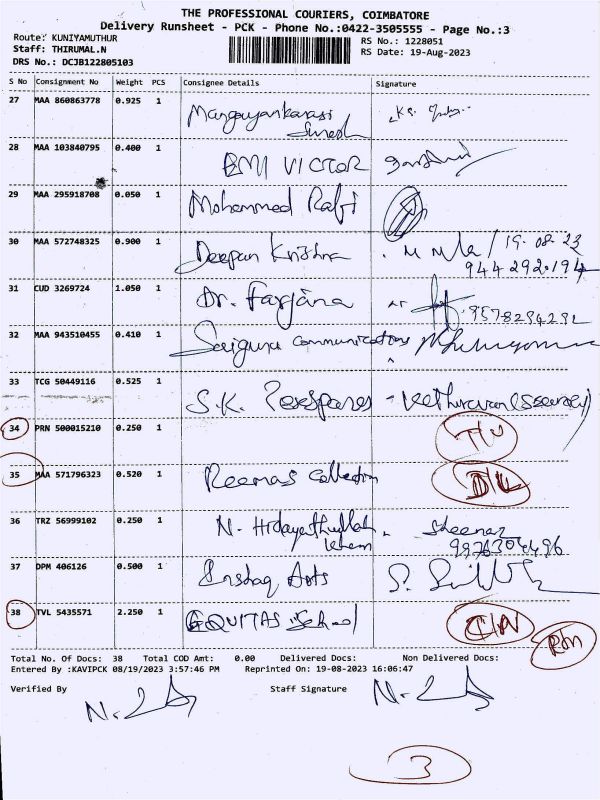 THE PROFESSIONAL COURIERS, COIMBATORE
Delivery Runsheet - PCK - Phone No.:0422-3505555 - Page No.:3
Route: KUNIYAMUTHUR
RS No.: 1228051
Staff: THIRUMAL.N
RS Date: 19-Aug-2023
DRS No.: DCJB122805103
S No Consignment No Weight PCS Consignee Details Signature
27 MAA 860863778 0.925 1
28 MAA 103840795 0.400 1 BMI VICTOR
29 MAA 295918708 0.050 1 Mohammed Rafi
30 MAA 572748325 0.900 1 Deepan Krishna 19.08.23
31 CUD 3269724 1.050 1 Dr. Farjana
32 MAA 943510455 0.410 1 Saiguru Communications
33 TCG 50449116 0.525 1 S.K.
34 PRN 500015210 0.250 1
35 MAA 571796323 0.520 1 Reemas Collection D/L
36 TRZ 56999102 0.250 1 N. Hidayathullah
37 DPM 406126 0.500 1 Arts
38 TVL 5435571 2.250 1 EQUITAS School
Total No. Of Docs: 38 Total COD Amt: 0.00 Delivered Docs: Non Delivered Docs:
Entered By :KAVIPCK 08/19/2023 3:57:46 PM Reprinted On: 19-08-2023 16:06:47
Verified By Staff Signature
3